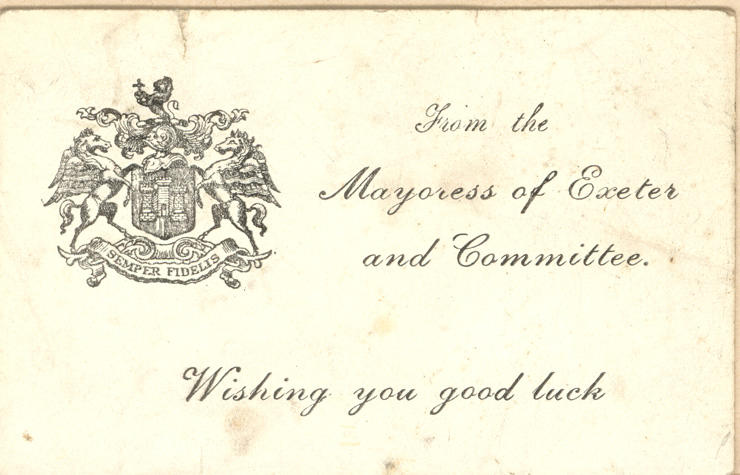 SEMPER FIDELIS
From the
Mayoress of Exeter
and Committee.
Wishing you good luck